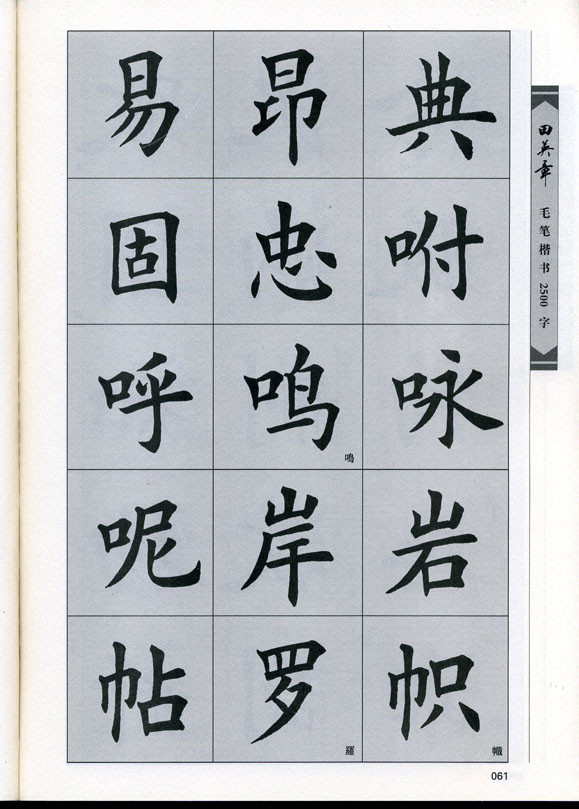 易 昂 典
固 忠 咐
呼 鸣 咏
鳴
呢 岸 岩
帖 罗 帜
羅 幟
田英章 毛笔楷书 2500 字
061